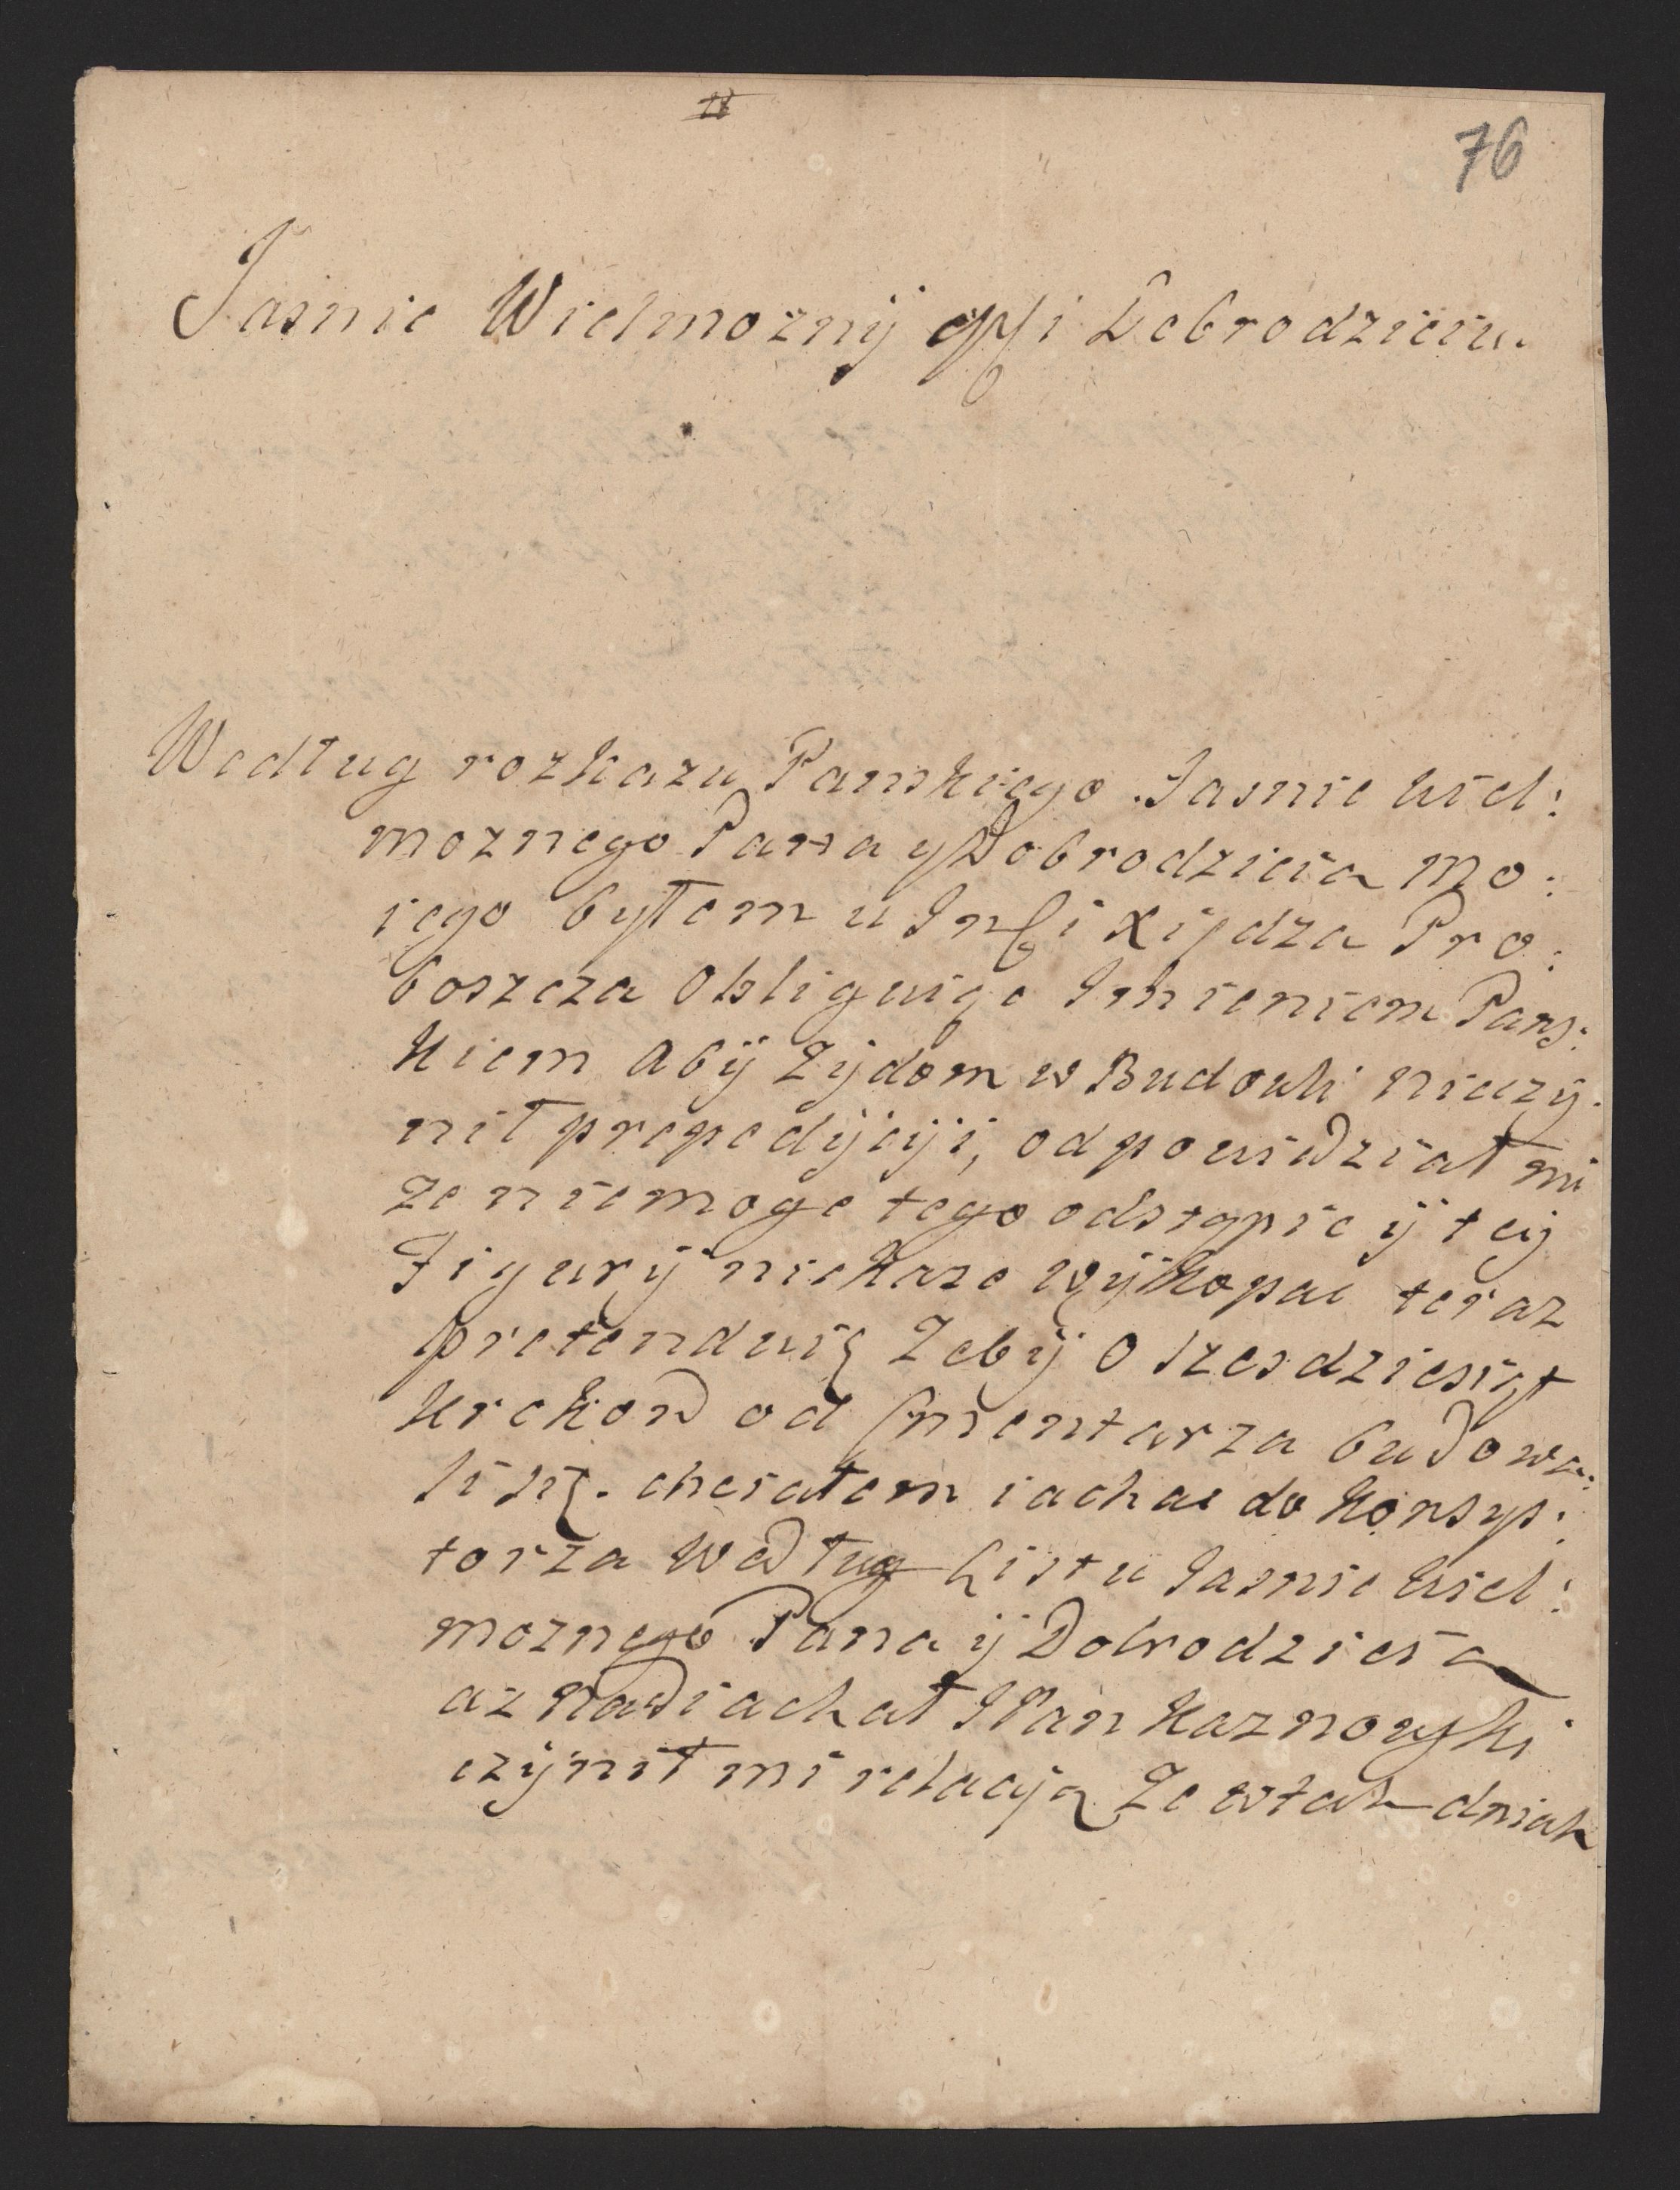 76
Jasnie Wielmoznÿ Dobrodzieiu
Według rozkazu Panskiego Jasnie Wiel:
moznego Pana y Dobrodzieia mo:
iego byłem u Xiȩdza Pro:
boszcza Obliguiąc Imieniem Pans:
kiem abÿ Zÿdom w Budowli nieczÿ:
nił prepedÿcÿi, odpowiedział mi
ze niemoge tego odstąpic ÿ teÿ
Figurÿ niekaze wÿkopac teraz
pretenduię Zebÿ o szesdziesiąt
krekow od Cmentarza budowa:
li się. chciałem iachac do Konsys:
torza Według Listu Jasnie Wiel:
moznego Pana ÿ Dobrodzieia
az nadiachał JPan Kaznowski
czÿnił mi relacÿą Ze wtak dniach